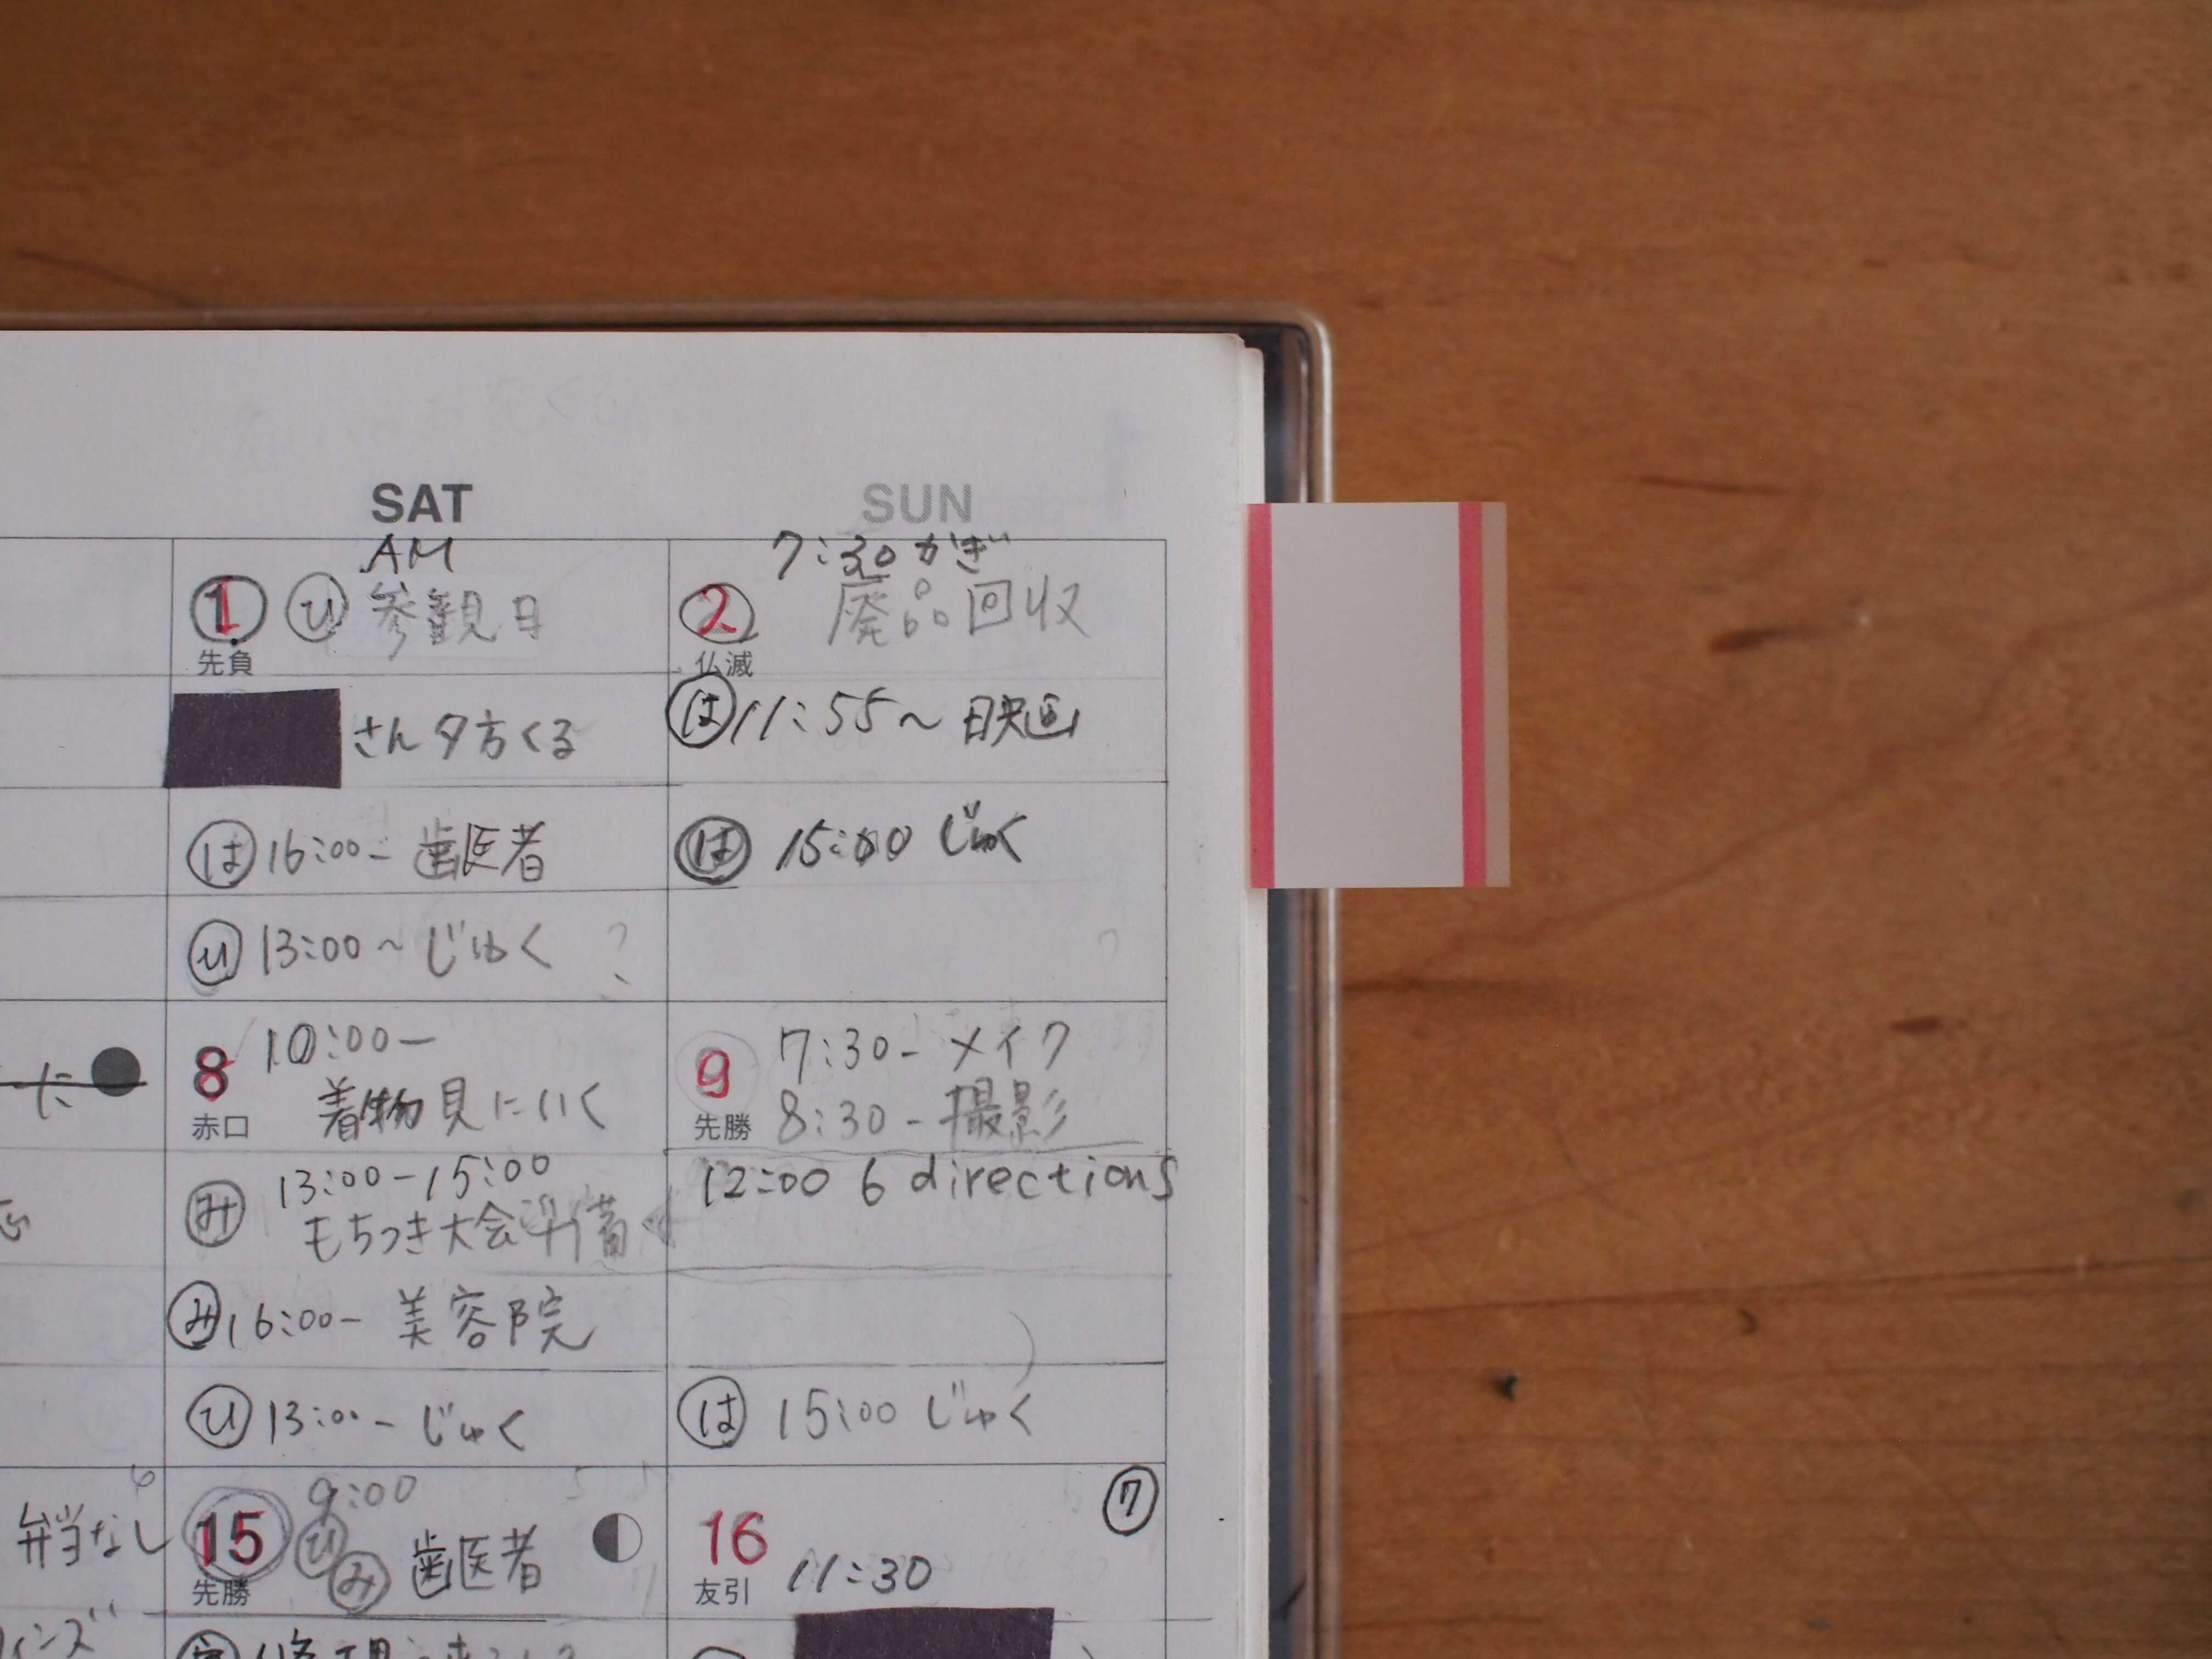 SAT
SUN
AM
1 ひ 参観日
先負
さん夕方くる
は 16:00- 歯医者
ひ 13:00~じゅく ?
7:30 かぎ
2 廃品回収
仏滅
は 11:55~ 映画
は 15:00 じゅく
た
8 10:00-
赤口 着物見にいく
み 13:00-15:00
もちつき大会準備
み 16:00- 美容院
ひ 13:00- じゅく
9 7:30- メイク
先勝 8:30- 撮影
12:00 6 directions
は 15:00 じゅく
弁当なし
15 9:00
先勝 ひ み 歯医者
16 7
友引 11:30